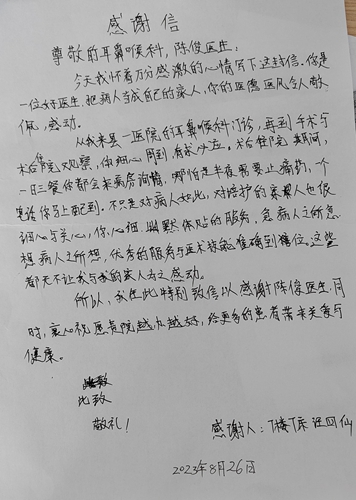 感谢信
尊敬的耳鼻喉科,陈俊医生:
今天我怀着万分感激的心情写下这封信。你是
一位好医生,把病人当成自己的家人,你的医德医风令人敬
佩,感动。
从我来县一医院的耳鼻喉科门诊,再到手术与
术后住院观察,你细心周到有求必应。术后住院期间,
一日三餐你都会来病房询情,哪怕是半夜需要止痛药,一个
电话你马上配到。不只是对病人如此,对陪护的家属人也很
细心与关心,你心细,幽默体贴的服务,急病人之所急
想病人之所想,优秀的服务与医术技能准确到位。这些
都无不让我与我的家人为之感动。
所以,我在此特别致信以感谢陈俊医生,同
时,衷心祝愿贵院越办越好,给更多的患者带来关爱与
健康。
此致
敬礼!
感谢人: 汪四仙
2023年8月26日